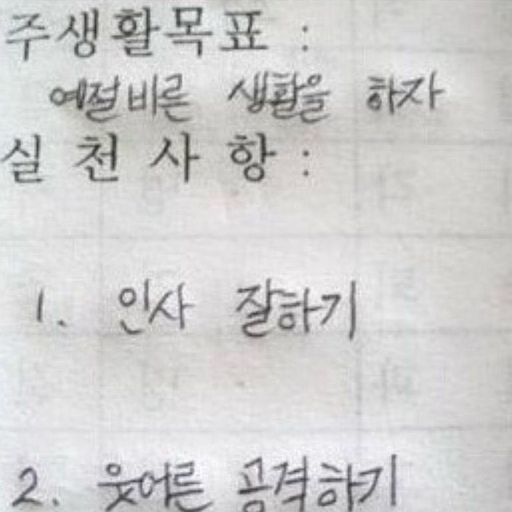 주생활목표 :
예절바른 생활을 하자
실 천 사 항 :
1. 인사 잘하기
2. 웃어른 공격하기